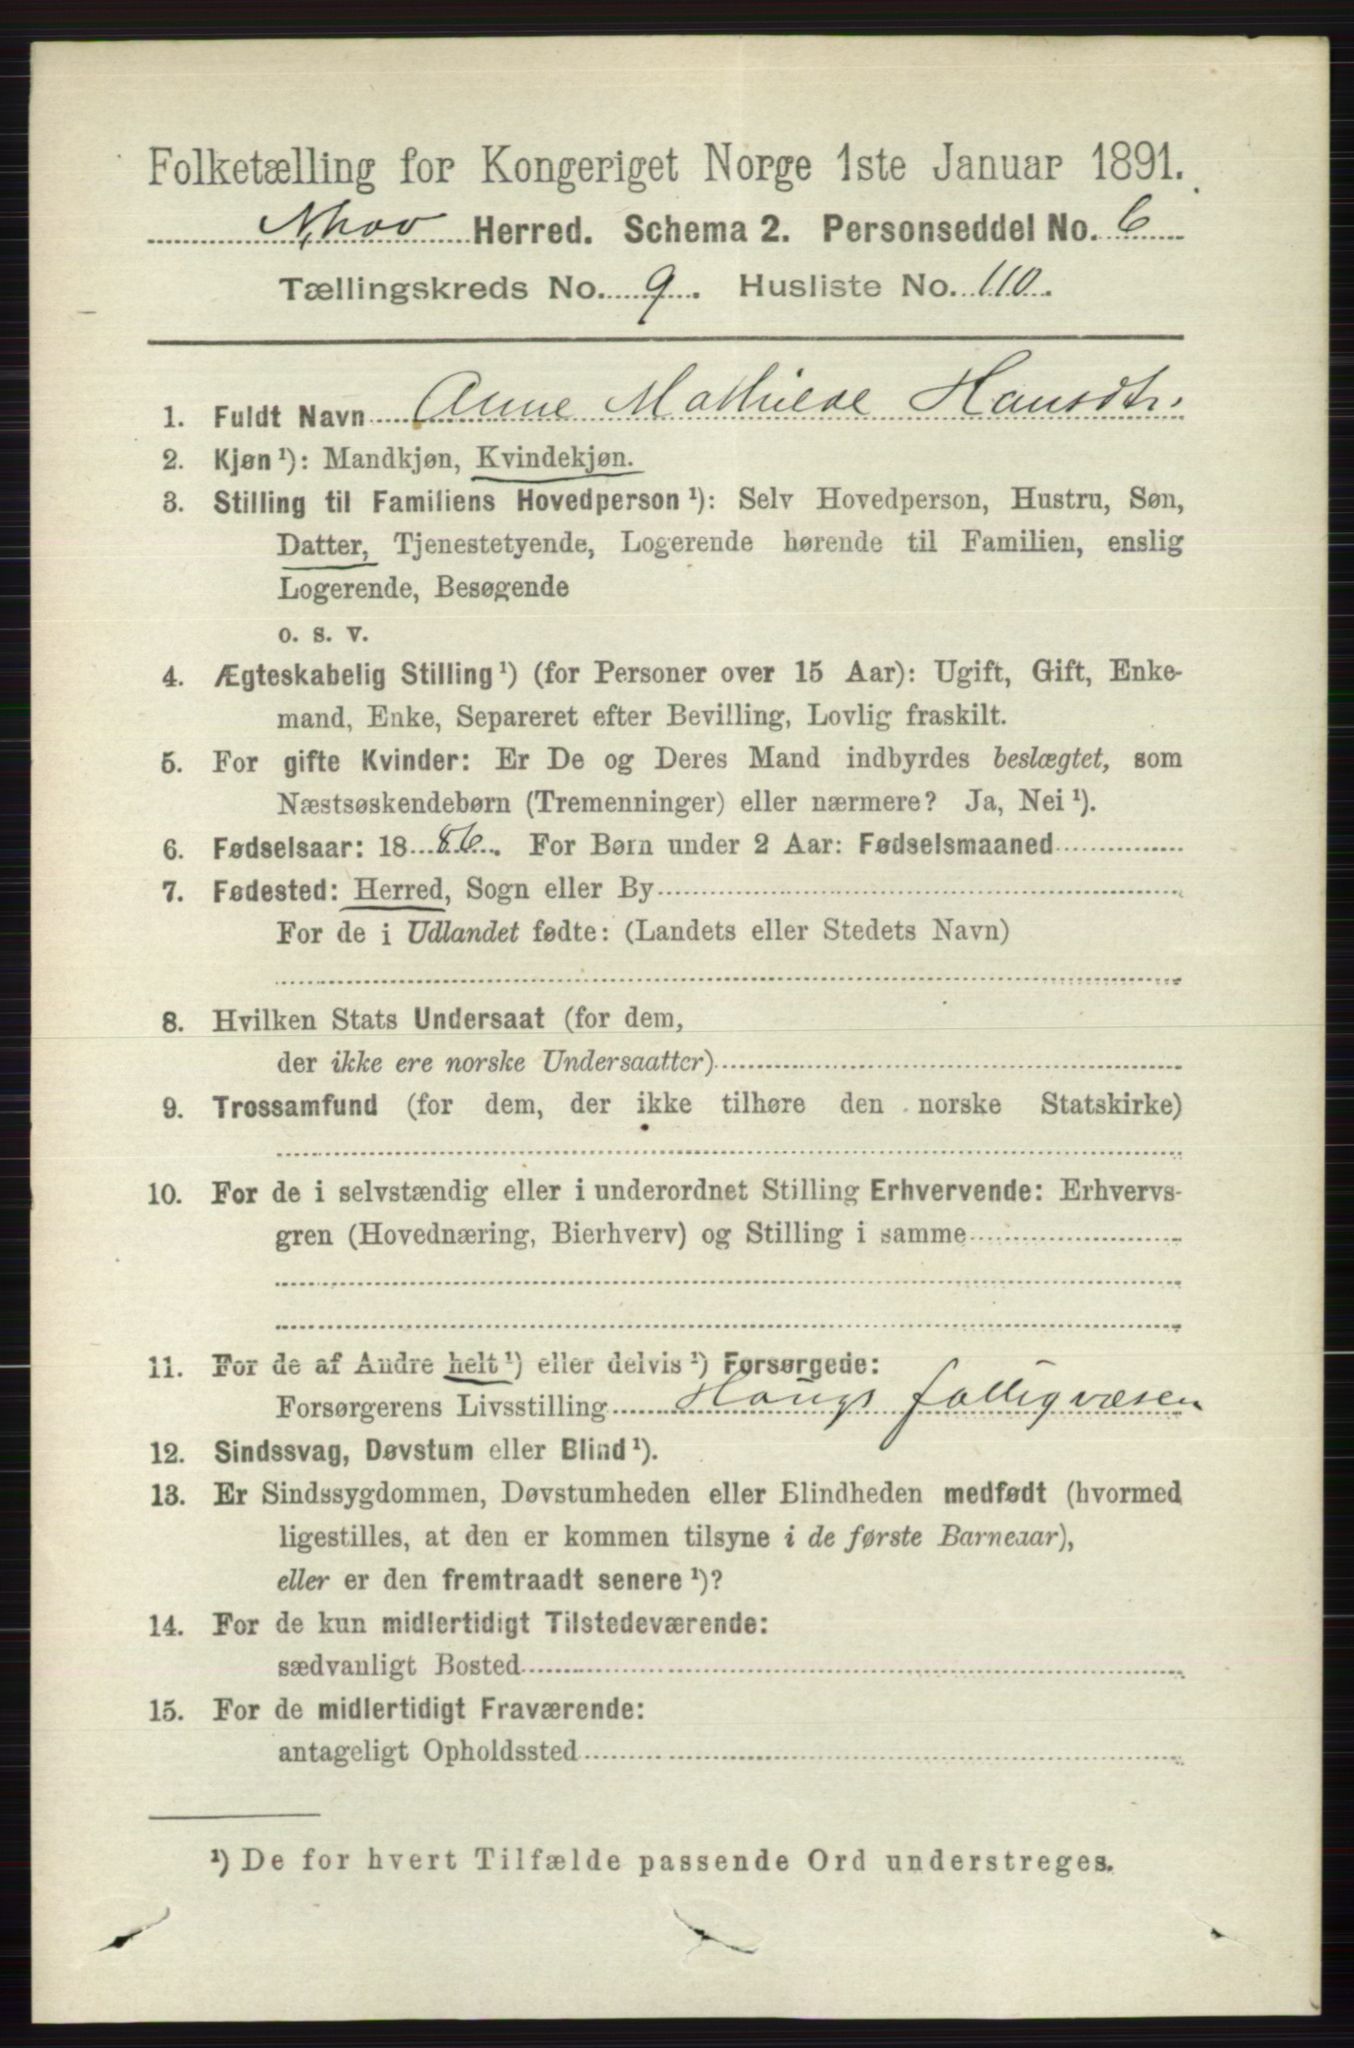 Folketælling for Kongeriget Norge 1ste Januar 1891.
Herred. Schema 2. Personseddel No. 6
Tællingskreds No. 9. Husliste No. 110.
1. Fuldt Navn Anne Mathilde Hansdtr.
2. Kjøn¹): Mandkjøn, Kvindekjøn.
3. Stilling til Familiens Hovedperson¹): Selv Hovedperson, Hustru, Søn,
Datter, Tjenestetyende, Logerende hørende til Familien, enslig
Logerende, Besøgende
o. s. v.
4. Ægteskabelig Stilling¹) (for Personer over 15 Aar): Ugift, Gift, Enke-
mand, Enke, Separeret efter Bevilling, Lovlig fraskilt.
5. For gifte Kvinder: Er De og Deres Mand indbyrdes beslægtet, som
Næstsøskendebørn (Tremenninger) eller nærmere? Ja, Nei¹).
6. Fødselsaar: 1886. For Børn under 2 Aar: Fødselsmaaned
7. Fødested: Herred, Sogn eller By
For de i Udlandet fødte: (Landets eller Stedets Navn)
8. Hvilken Stats Undersaat (for dem,
der ikke ere norske Undersaatter)
9. Trossamfund (for dem, der ikke tilhøre den norske Statskirke)
10. For de i selvstændig eller i underordnet Stilling Erhvervende: Erhvervs-
gren (Hovednæring, Bierhverv) og Stilling i samme
11. For de af Andre helt¹) eller delvis¹) Forsørgede:
Forsørgerens Livsstilling Haugs fattigvæsen
12. Sindssvag, Døvstum eller Blind¹).
13. Er Sindssygdommen, Døvstumheden eller Blindheden medfødt (hvormed
ligestilles, at den er kommen tilsyne i de første Barneaar),
eller er den fremtraadt senere¹)?
14. For de kun midlertidigt Tilstedeværende:
sædvanligt Bosted
15. For de midlertidigt Fraværende:
antageligt Opholdssted
¹) De for hvert Tilfælde passende Ord understreges.